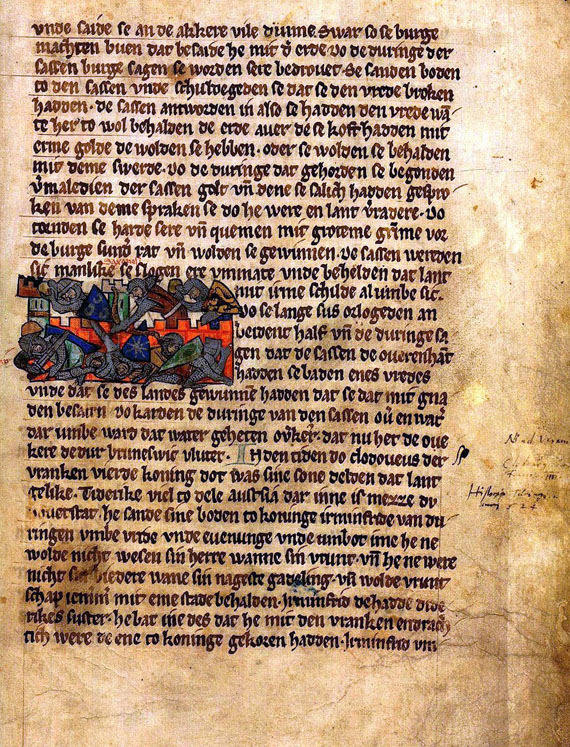 vnde saide se an de akkere vile dunne. Swar so se burge
machten buen dat besaide he mit der erde. Vo de duringe der
sassen burge sagen se worden sere bedrouet. Se sanden boden
to den sassen vnde schuldegeden se dat se den vrede broken
hadden. de sassen antworden in also se hadden den vrede wan
te her to wol behalden de erde auer de se koft hadden mit
erme golde de wolden se hebben. oder se wolden se behalden
mit deme swerde. Vo de duringe dat gehorden se begonden
vmaledien der sassen golt vñ dene se salich hadden gespro
ken van deme spraken se do he were en lant vradere. Vo
tornden se harde sere vñ quemen mit groteme grime vor
de burge sund rat vñ wolden se gewinnen. De sassen werden
sic manlike se slogen ere viminate vnde behelden dat lant
mit irme schilde al umbe sic.
Vo se lange sus orlogeden an
beident half vñ de duringe sa
gen dat de sassen de ouerenhant
hadden se baden enes vredes
vnde dat se des landes gewinne hadden dat se dat mit gna
den besatin do karden de duringe van den sassen
dar umbe ward dat water geheten ouker. dat nu her de oue
kere de dur bruneswic vlutet. In den tiden do clodoueus der
vranken vierde koning dot was sine sone delden dat lant
gelike. Tiderike viel to dele austria dar inne is mezze
he sande sine boden to koninge irminfride van du
ringen vmbe vride vnde euenunge vnde umbot ime he ne
wolde nicht wesen sin herre wanne sin vrunt. vñ he ne were
nicht sin biedere wane sin nageste gadeling. vñ wolde vrunt
schap iemmir mit eme stade behalden. Irminfrid de hadde dide
rikes suster. he bat ine des dat he mit den vranken endrach
tich were de ene to koninge gekoren hadden. Irminfrid vm
Historia
524